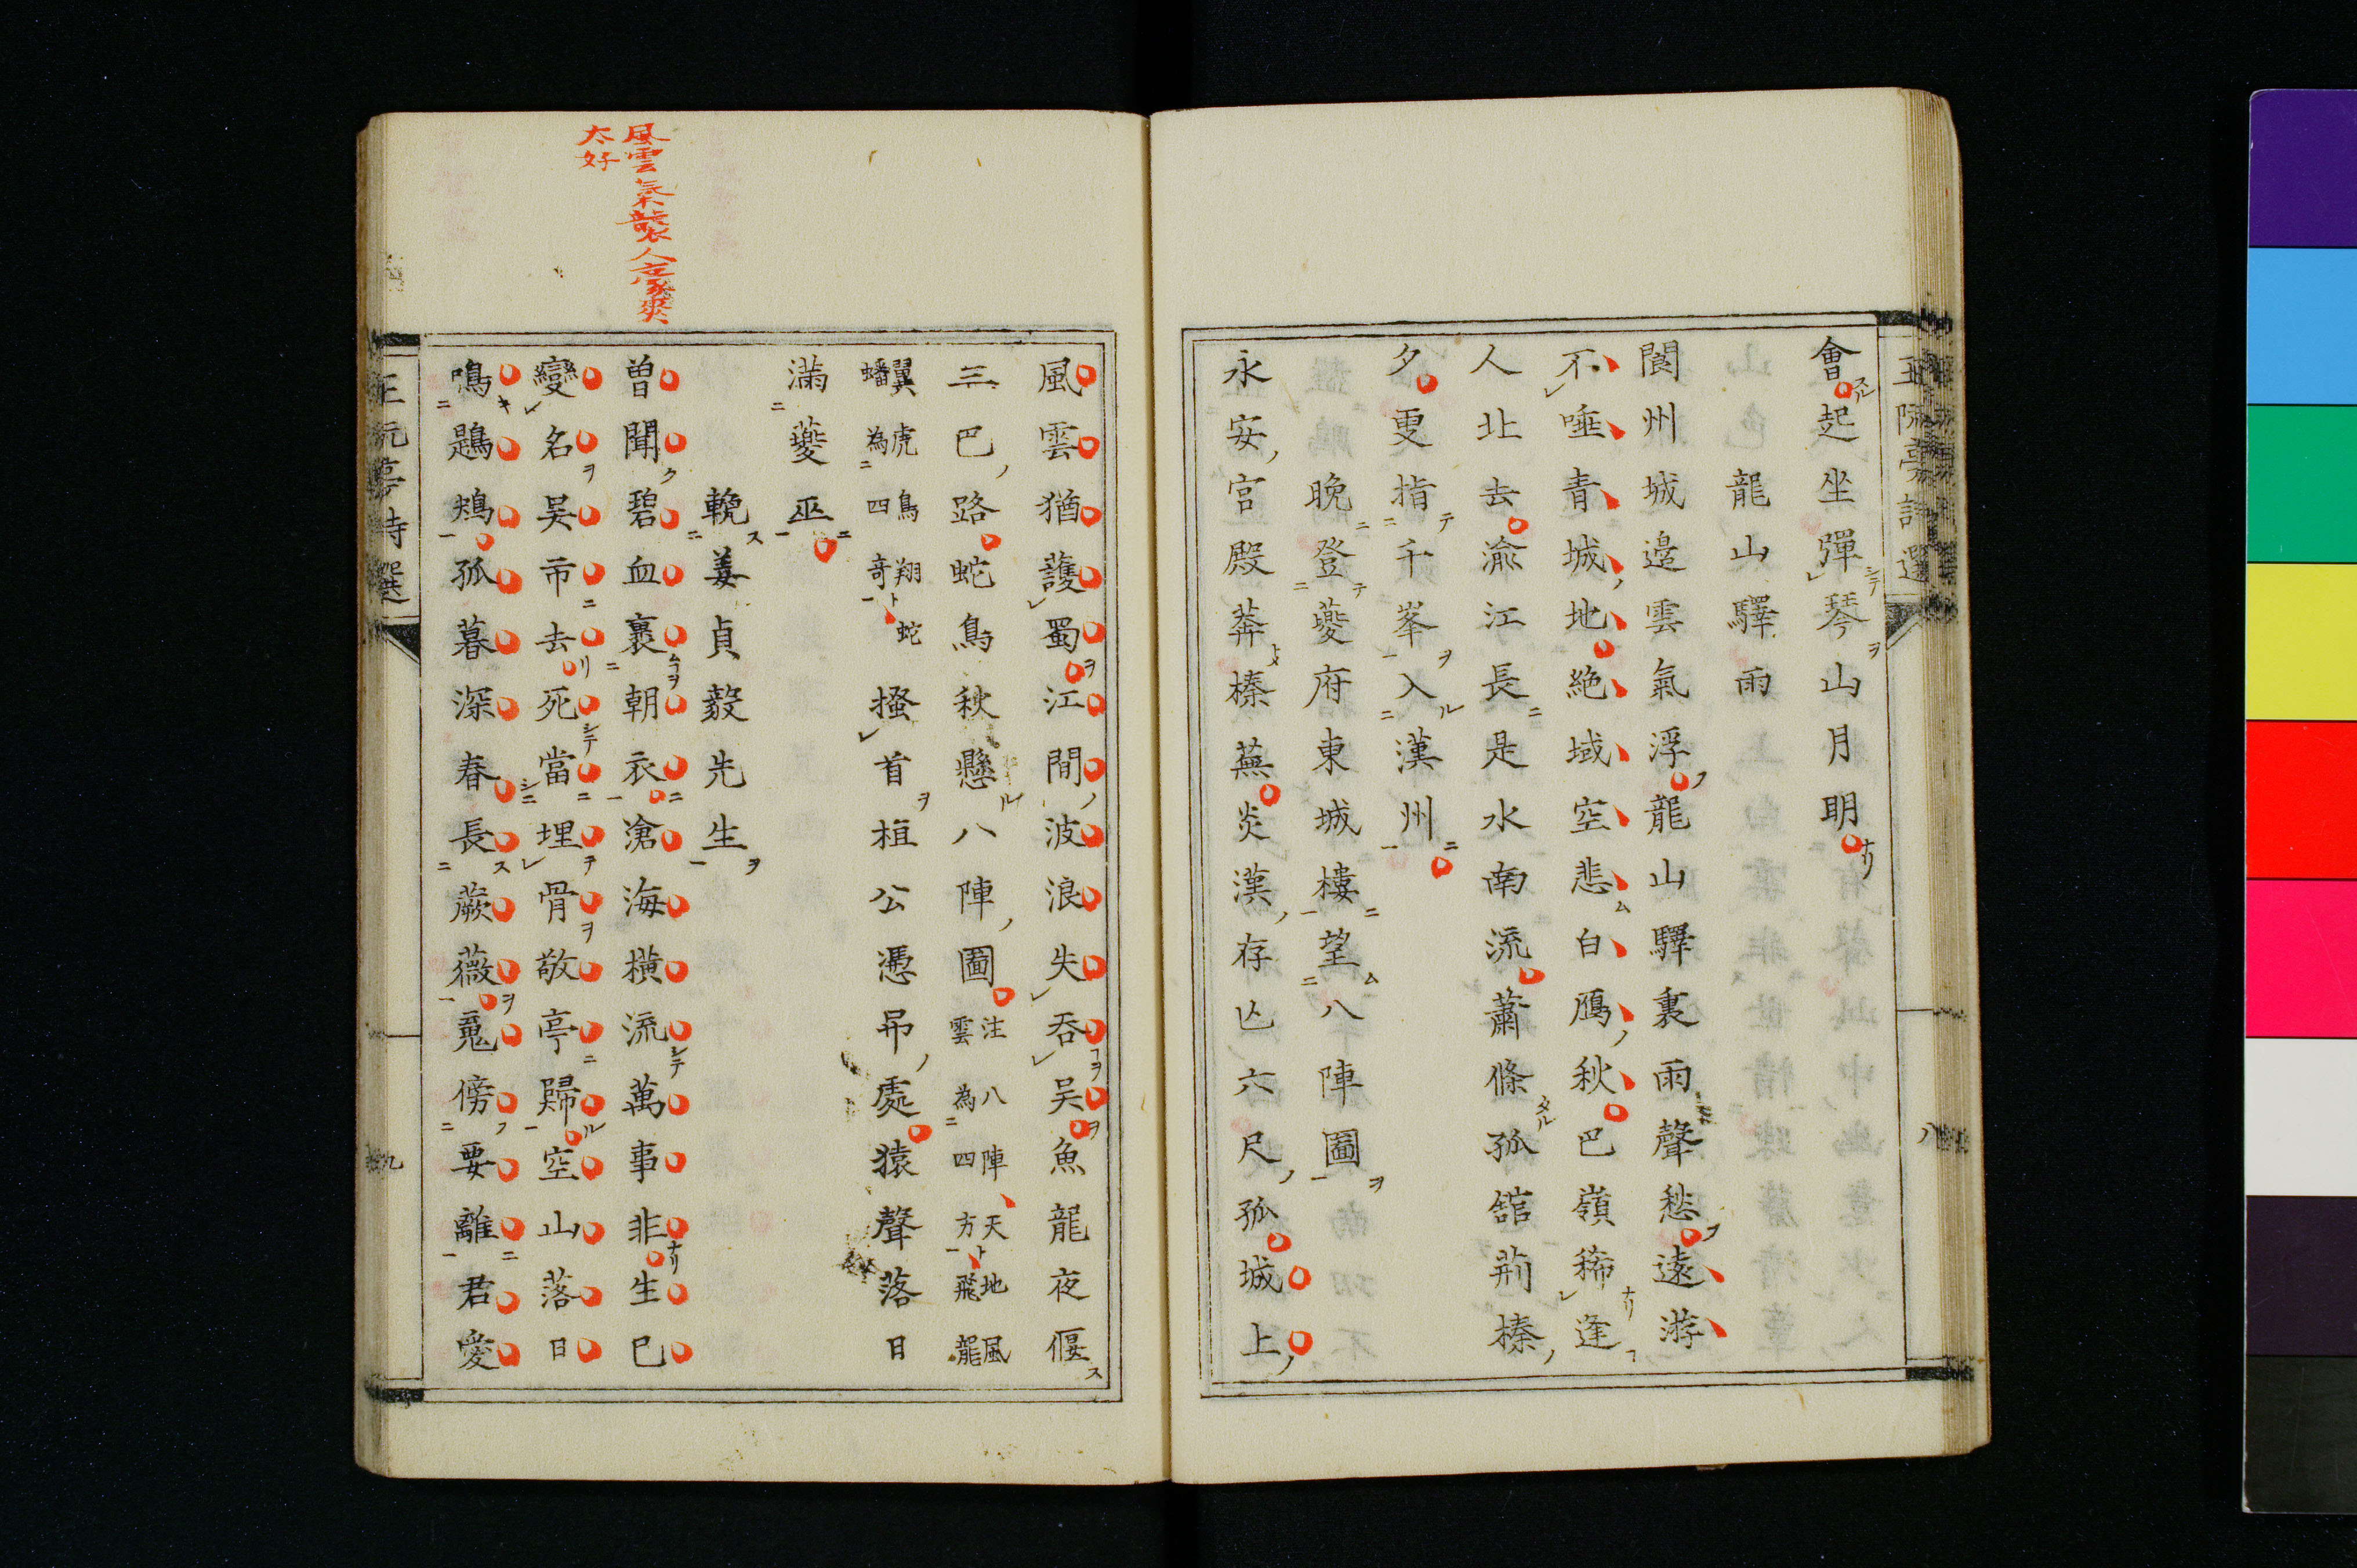 會起坐彈琴山月明
龍山驛雨
閬州城邊雲氣浮龍山驛裏雨聲愁遠游
不唾青城地絶域空悲白鴈秋巴嶺稀逢
人北去渝江長是水南流蕭條孤舘荊榛
夕更指千峯入漢州
晚登夔府東城樓望八陣圖
永安宮殿莽榛蕪炎漢存亾六尺孤城上
八
風雲猶護蜀江間波浪失吞吴魚龍夜偃
三巴路蛇鳥秋懸八陣圖注八陣天地風雲為四方飛龍
翼虎鳥翔蛇蟠為四奇搔首桓公憑弔處猿聲落日
滿夔巫
輓姜貞毅先生
曾聞碧血裹朝衣滄海橫流萬事非生已
變名吴市去死當埋骨敬亭歸空山落日
鳴鶗鴂孤墓深春長蕨薇䰟傍要離君愛
王阮亭詩選
九
風雲氣襲人豪爽
太好